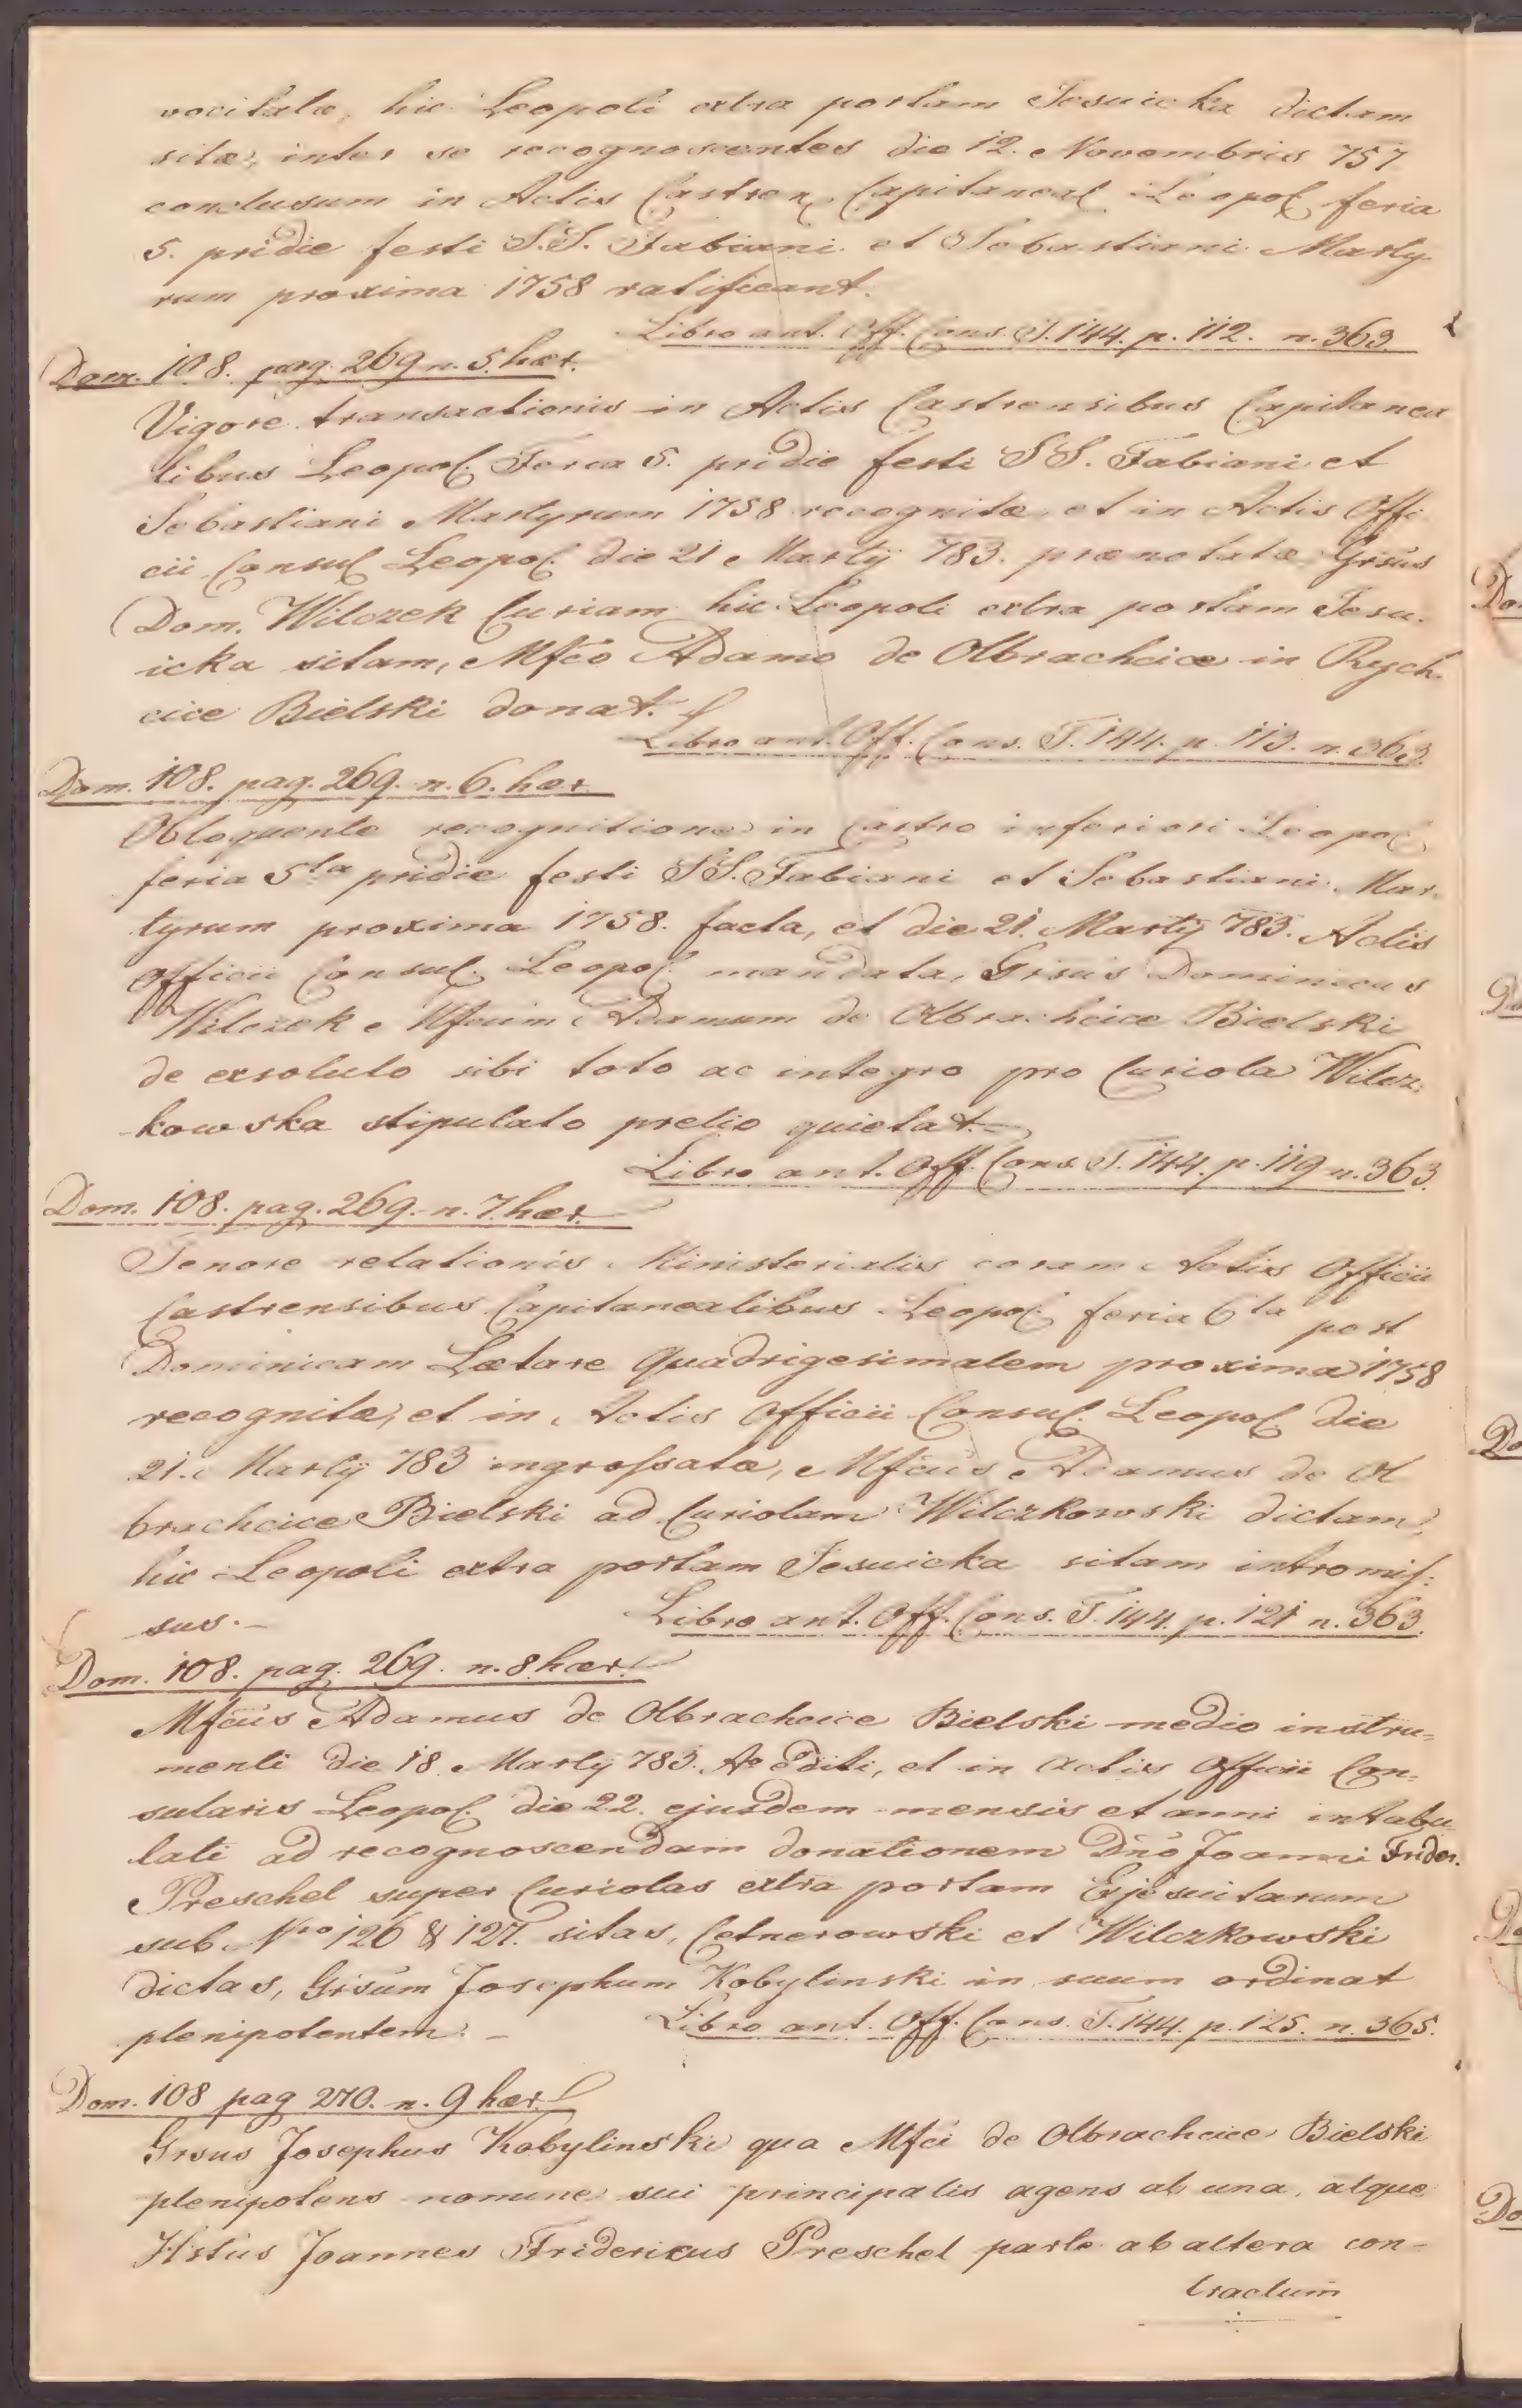 vocitatæ, hic Leopoli extra portam Jesuicka dictam
sitæ, inter se recognoscentes die 12. Novembris 757
conclusum in Actis Castren. Capitaneal. Leopol. feria
5. pridie festi S.S. Fabiani et Sebastiani Marty
rum proxima 1758 ratificant.
Libro ant. Off. Cons. T. 144. p. 112. n. 363
Dom. 108. pag. 269 n. 5. hær.
Vigore transactionis in Actis Castrensibus Capitanea
libus Leopol. Feria 5. pridie festi SS. Fabiani et
Sebastiani Martyrum 1758 recognitæ, et in Actis Offi
cii Consul. Leopol. die 21 Martÿ 783. prænotatæ Grsus
Dom. Wilczek Curiam hic Leopoli extra portam Jesu.
icka sitam, Mfco Adamo de Olbrachcice in Rych.
cice Bielski donat.
Libro ant. Off. Cons. T. 144. p. 113. n. 363.
Dom. 108. pag. 269. n. 6. hær
Obloquente recognitione in Castro inferiori Leopol.
feria 5ta pridie festi S.S. Fabiani et Sebastiani Mar.
tyrum proxima 1758. facta, et die 21. Martÿ 783. Actis
Officii Consul. Leopol. mandata, Grsus Dominicus
Wilczek Mfcum Adamum de Olbrachcice Bielski
de exsoluto sibi toto ac integro pro Curiola Wilcz.
kowska stipulato pretio quietat.
Libro ant. Off. Cons. T. 144. p. 119 n. 363.
Dom. 108. pag. 269. n. 7. hær.
Tenore relationis Ministerialis coram Actis Officii
Castrensibus Capitanealibus Leopol. feria 6ta post
Dominicam Lætare Quadrigesimalem proxima 1758
recognitæ, et in Actis Officii Consul. Leopol. die
21. Martÿ 783 ingrossatæ, Mfcus Adamus de Ol
brachcice Bielski ad Curiolam Wilczkowski dictam
hic Leopoli extra portam Jesuicka sitam intromis:
sus.
Libro ant. Off. Cons. T. 144. p. 121 n. 363.
Dom. 108. pag. 269. n. 8 hær.
Mfcus Adamus de Olbrachcice Bielski medio instru=
menti die 18. Martÿ 783. Ao editi, et in actis Officii Con=
sularis Leopol. die 22. ejusdem mensis et anni intabu
lati ad recognoscendam donationem Dno Joanni Frider.
Preschel super Curiolas extra portam Exjesuitarum
sub Nro 126 & 127. sitas, Cetnerowski et Wilczkowski
dictas, Grsum Josephum Kobylinski in suum ordinat
plenipotentem.
Libro ant. Off. Cons. T. 144. p. 125. n. 365.
Dom. 108 pag 270. n. 9 hær.
Grsus Josephus Kobylinski qua Mfci de Olbrachcice Bielski
plenipotens nomine sui principalis agens ab una, atque
Hstus Joannes Fridericus Preschel parte ab altera con-
tractum